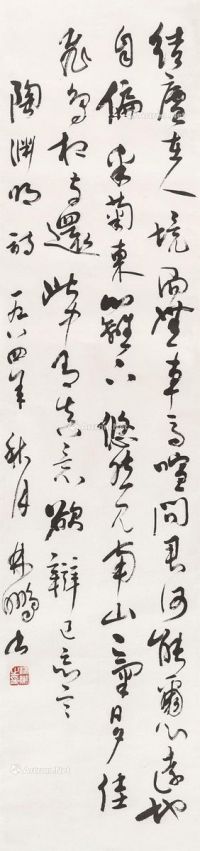 結廬在人境而無車馬喧問君何能爾心遠地
自偏采菊東籬下悠然見南山〻氣日夕佳
飛鳥相與還此中有真意欲辯已忘言
陶淵明詩 一九八四年秋月 林鵬书